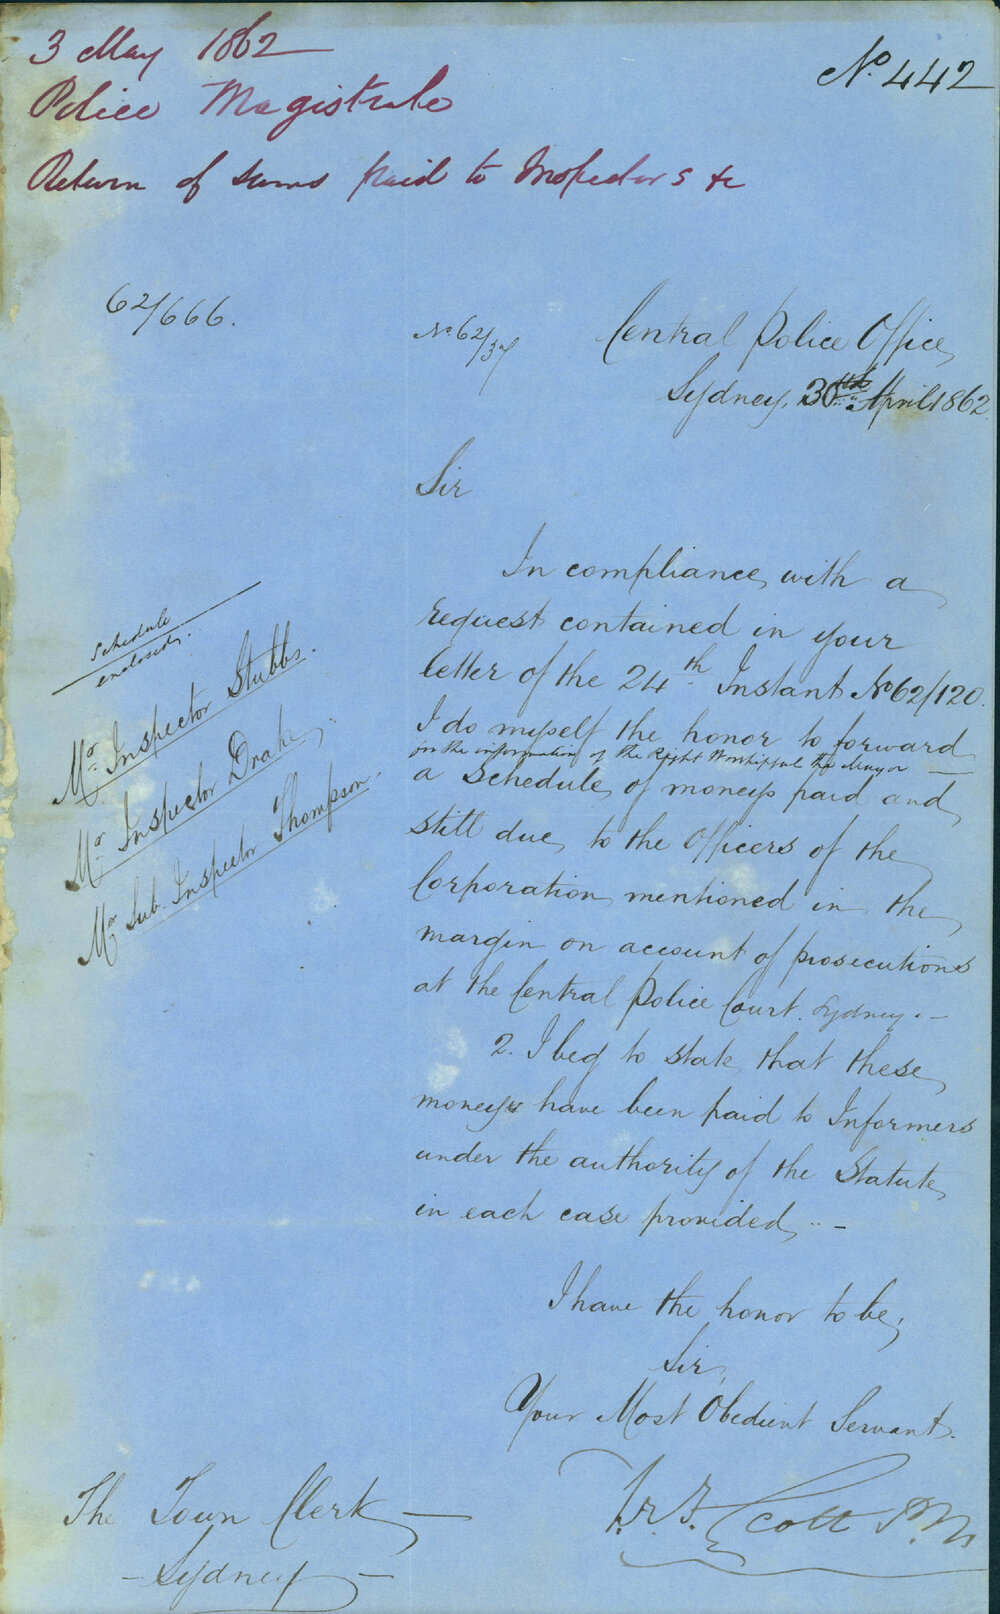 3 May 1862
Police Magistrate
Return of sums paid to Inspectors &c
No. 442
62/666.
No 62/37
Central Police Office,
Sydney, 30th April 1862
Sir
In compliance, with a
request contained in your
letter of the 24th Instant No 62/120.
I do myself the honor to forward
for the information of the Right Worshipful the Mayor
a Schedule, of moneys paid and
still due, to the Officers of the
Corporation mentioned in the
margin on account of prosecutions
at the Central Police Court. Sydney. —
2. I beg to state, that these
moneys have been paid to Informers
under the authority of the Statute,
in each case provided, —
Schedule
enclosed.
Mr. Inspector Stubbs.
Mr. Inspector Drake,
Mr Sub. Inspector Thompson.
I have the honor to be,
Sir,
Your Most Obedient Servant.
Scott P.M.
The Town Clerk —
— Sydney —